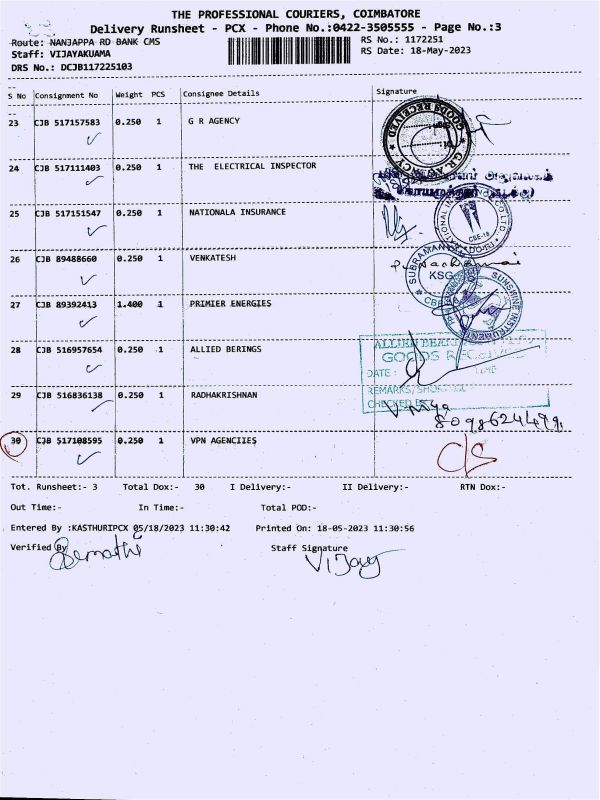 THE PROFESSIONAL COURIERS, COIMBATORE
Delivery Runsheet - PCX - Phone No.:0422-3505555 - Page No.:3
Route: NANJAPPA RD BANK CMS
RS No.: 1172251
Staff: VIJAYAKUAMA
RS Date: 18-May-2023
DRS No.: DCJB117225103
S No Consignment No Weight PCS Consignee Details Signature
23 CJB 517157583 0.250 1 G R AGENCY
GOODS RECEIVED
G.R. AGENCY
24 CJB 517111403 0.250 1 THE ELECTRICAL INSPECTOR
25 CJB 517151547 0.250 1 NATIONALA INSURANCE
CBE-18
26 CJB 89488660 0.250 1 VENKATESH
KSG
27 CJB 89392413 1.400 1 PRIMIER ENERGIES
SUNSHINE INSTRUMENT
28 CJB 516957654 0.250 1 ALLIED BERINGS
ALLIED
GOODS
DATE :
REMARKS,
CHECKED BY
29 CJB 516836138 0.250 1 RADHAKRISHNAN
8098624499
30 CJB 517108595 0.250 1 VPN AGENCIIES
C/S
Tot. Runsheet:- 3 Total Dox:- 30 I Delivery:- II Delivery:- RTN Dox:-
Out Time:- In Time:- Total POD:-
Entered By :KASTHURIPCX 05/18/2023 11:30:42 Printed On: 18-05-2023 11:30:56
Verified By
Staff Signature
Vijay